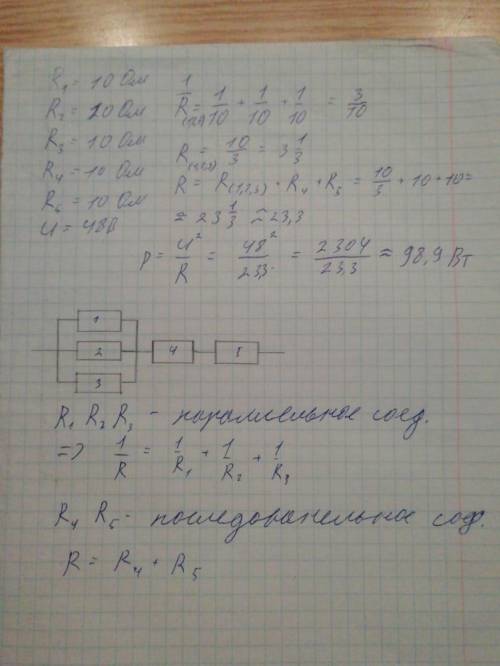 R₁ = 10 Ом
R₂ = 10 Ом
R₃ = 10 Ом
R₄ = 10 Ом
R₅ = 10 Ом
U = 48В
1/R(1,2,3) = 1/10 + 1/10 + 1/10 = 3/10
R(1,2,3) = 10/3 = 3 1/3
R = R(1,2,3) + R₄ + R₅ = 10/3 + 10 + 10 =
= 23 1/3 ≈ 23,3
P = U²/R = 48²/23,3 = 2304/23,3 ≈ 98,9 Вт
1
2
3
4
5
R₁ R₂ R₃ - параллельное соед.
=> 1/R = 1/R₁ + 1/R₂ + 1/R₃
R₄ R₅ - последовательное соед.
R = R₄ + R₅